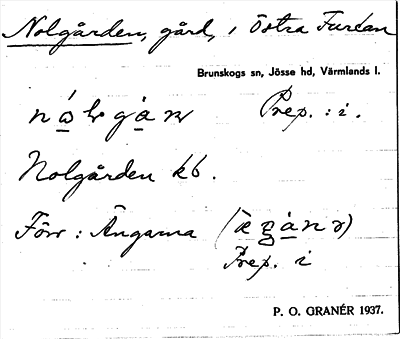 Nolgården, gård, i Östra Furtan
Brunskogs sn, Jösse hd, Värmlands l.
Prep. : i.
Nolgården kb.
Förr : Ängarna
Prep. i
P. O. GRANÉR 1937.